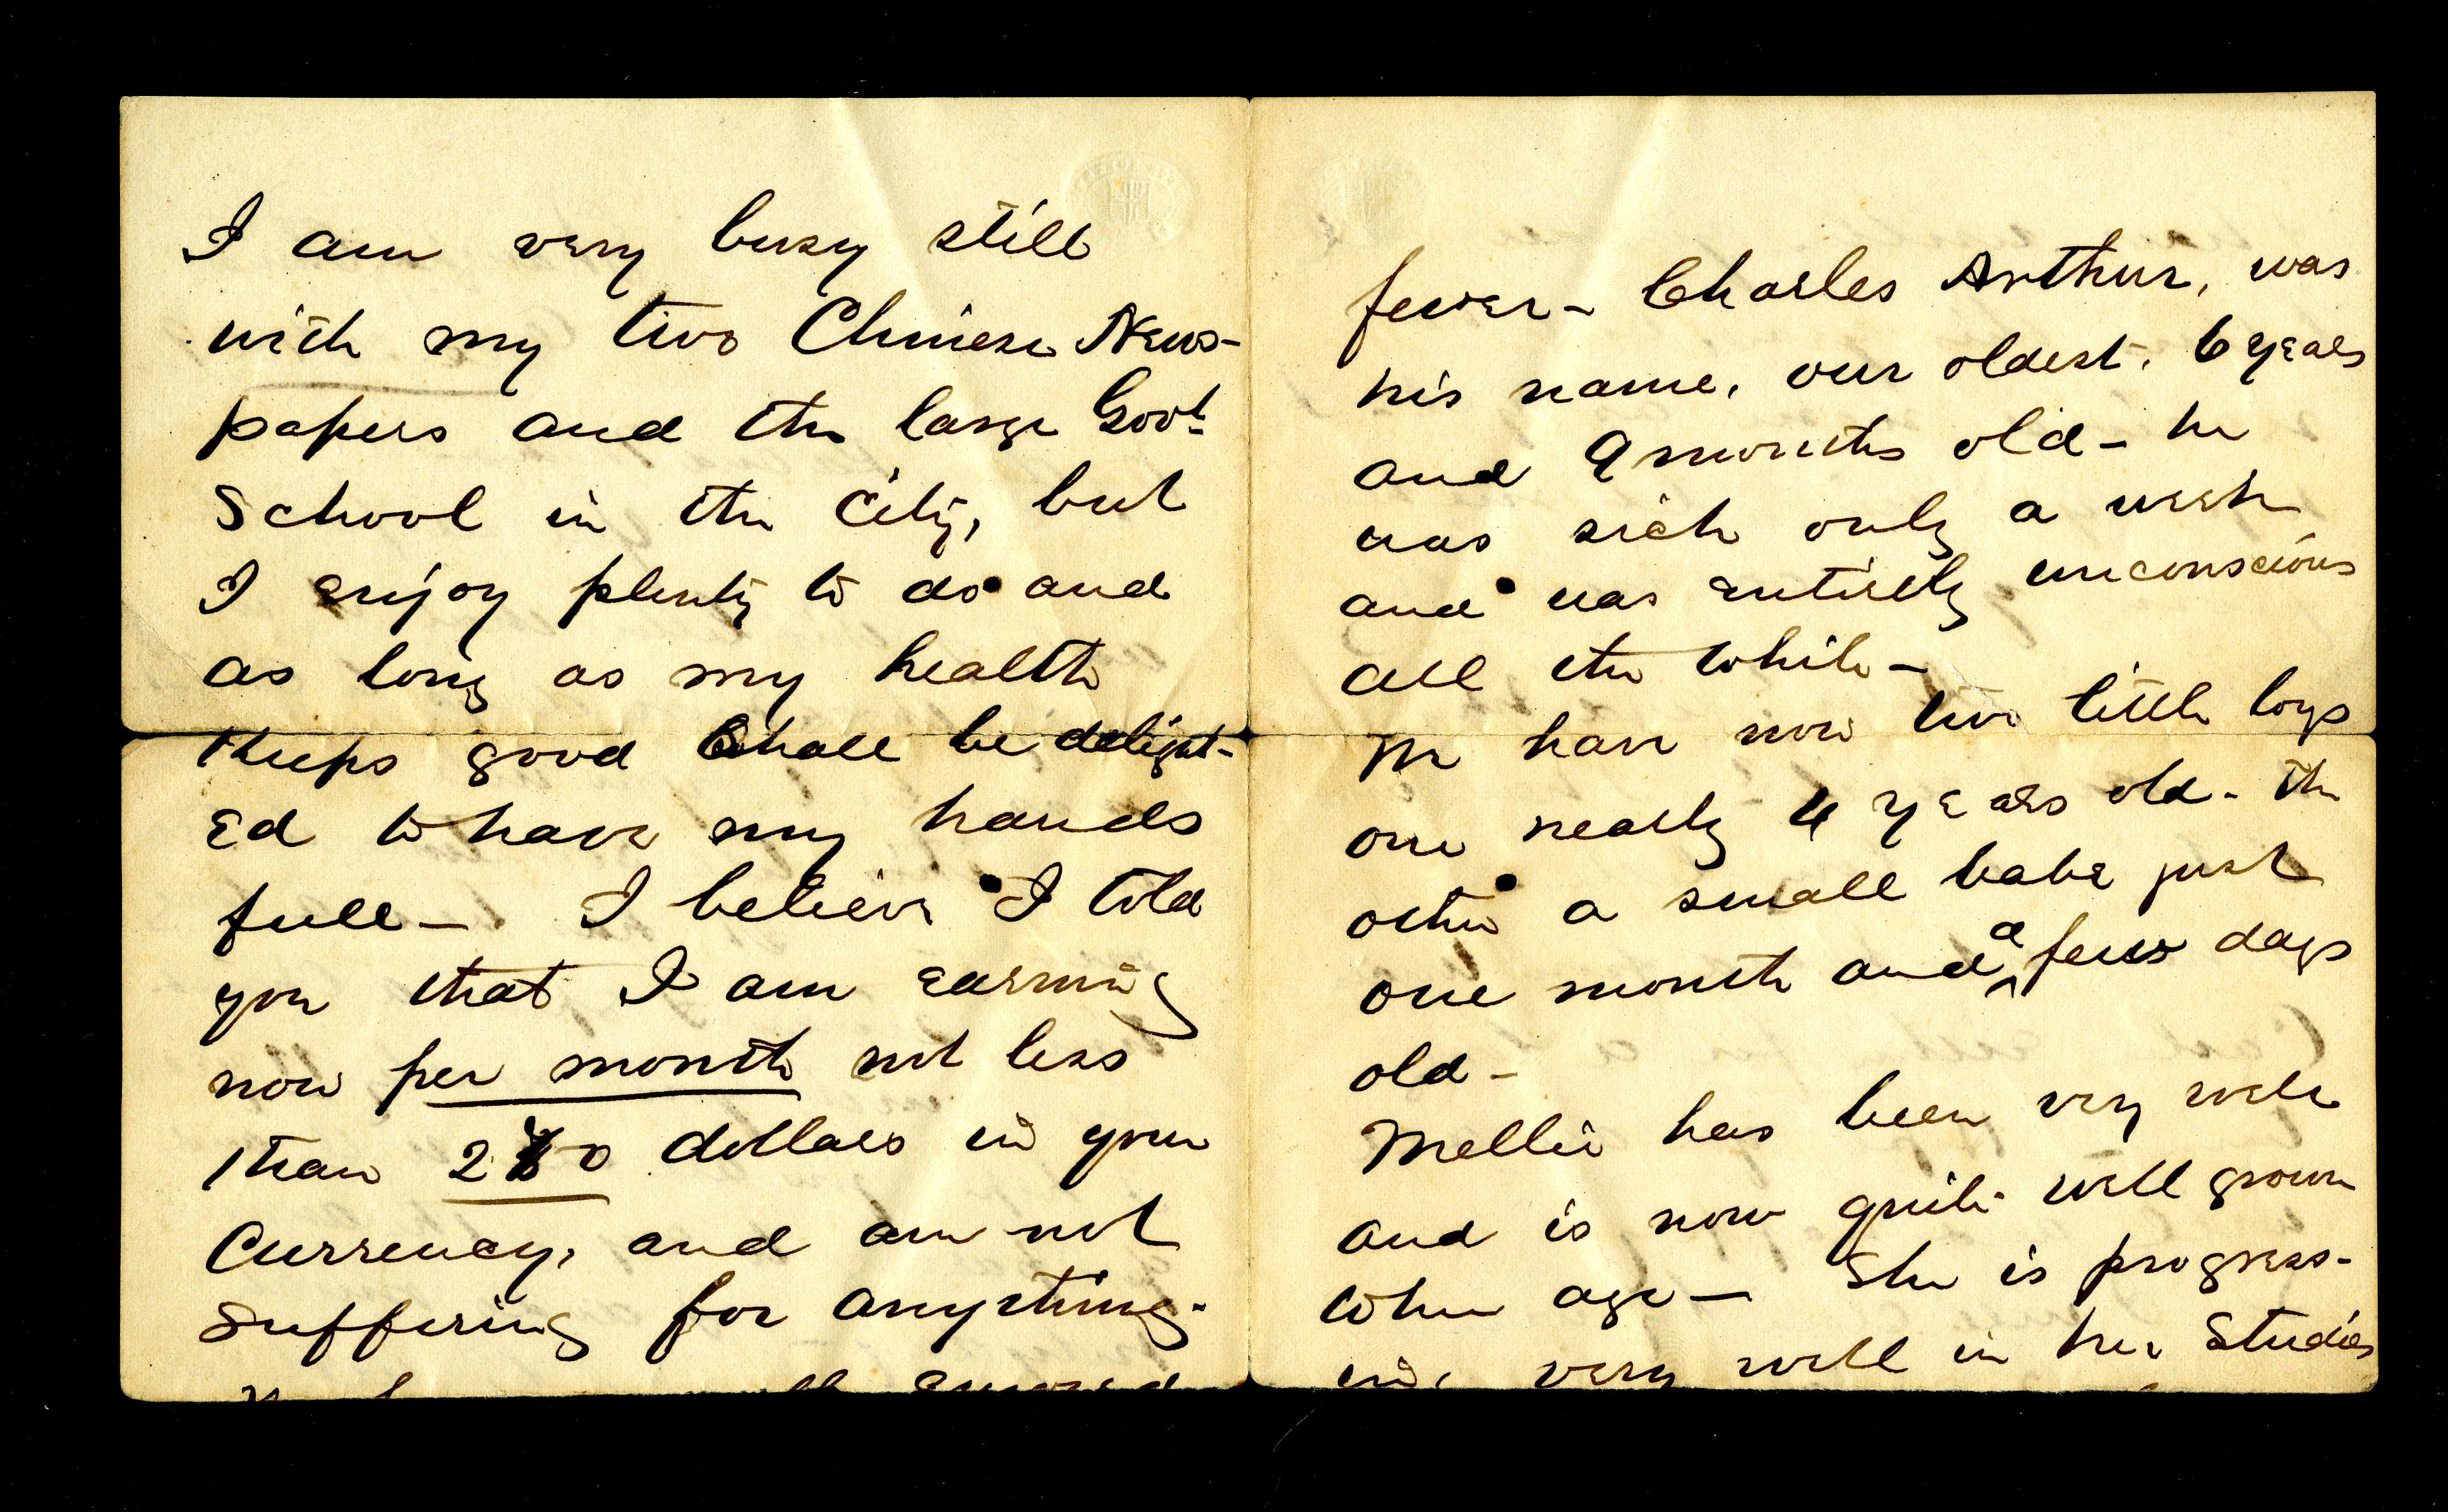 I am very busy still
with my two Chinese News-
papers and the large Govt.
School in the City, but
I enjoy plenty to do and
as long as my health
keeps good Shall be delight-
ed to have my hands
full - I believe I told
you that I am earning
now per month not less
than dollars in your
Currency, and am not
Suffering for anything.
engaged
fever - Charles Arthur, was
his name, our oldest. 6 years
and 9 months old - he
was sick only a week
and was entirely unconscious
all the while -
We have now two little boys
one nearly 4 years old - the
other a small babe just
one month and a few days
old -
Mellie has been very well
and is now quite well grown
when age - She is progress-
ing very well in her Studies